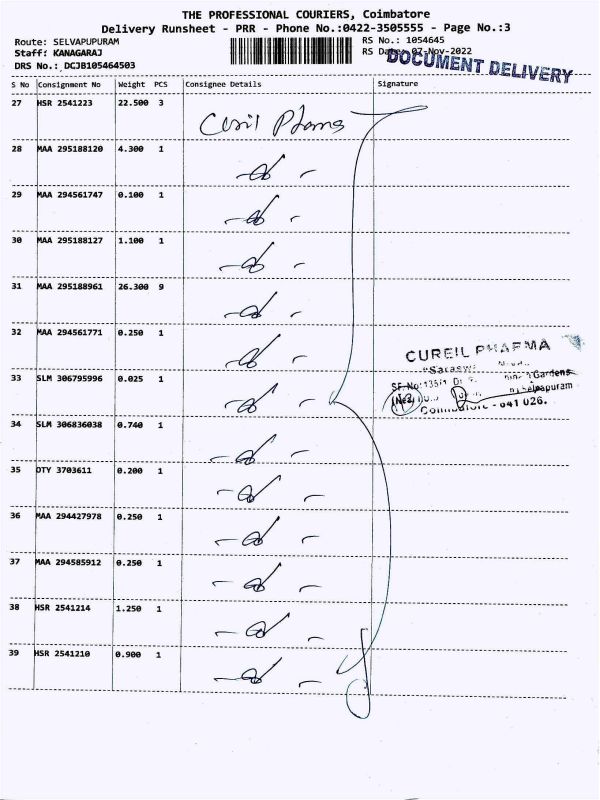 THE PROFESSIONAL COURIERS, Coimbatore
Delivery Runsheet - PRR - Phone No.:0422-3505555 - Page No.:3
Route: SELVAPUPURAM
RS No.: 1054645
Staff: KANAGARAJ
RS Date: 07-Nov-2022
DRS No.: DCJB105464503
DOCUMENT DELIVERY
S No Consignment No Weight PCS Consignee Details Signature
27 HSR 2541223 22.500 3
28 MAA 295188120 4.300 1
29 MAA 294561747 0.100 1
30 MAA 295188127 1.100 1
31 MAA 295188961 26.300 9
32 MAA 294561771 0.250 1
CUREIL PHARMA
33 SLM 306795996 0.025 1
Gardens
Selpapuram
Coimbatore - 641 026.
34 SLM 306836038 0.740 1
35 OTY 3703611 0.200 1
36 MAA 294427978 0.250 1
37 MAA 294585912 0.250 1
38 HSR 2541214 1.250 1
39 HSR 2541210 0.900 1